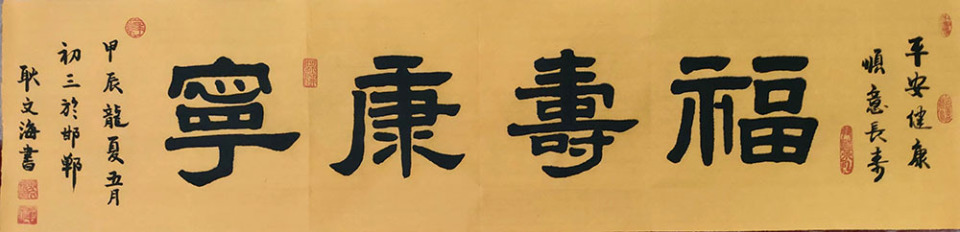 平安健康
順意長寿
福壽康寧
甲辰龍夏五月
初三於邯鄲
耿文海書